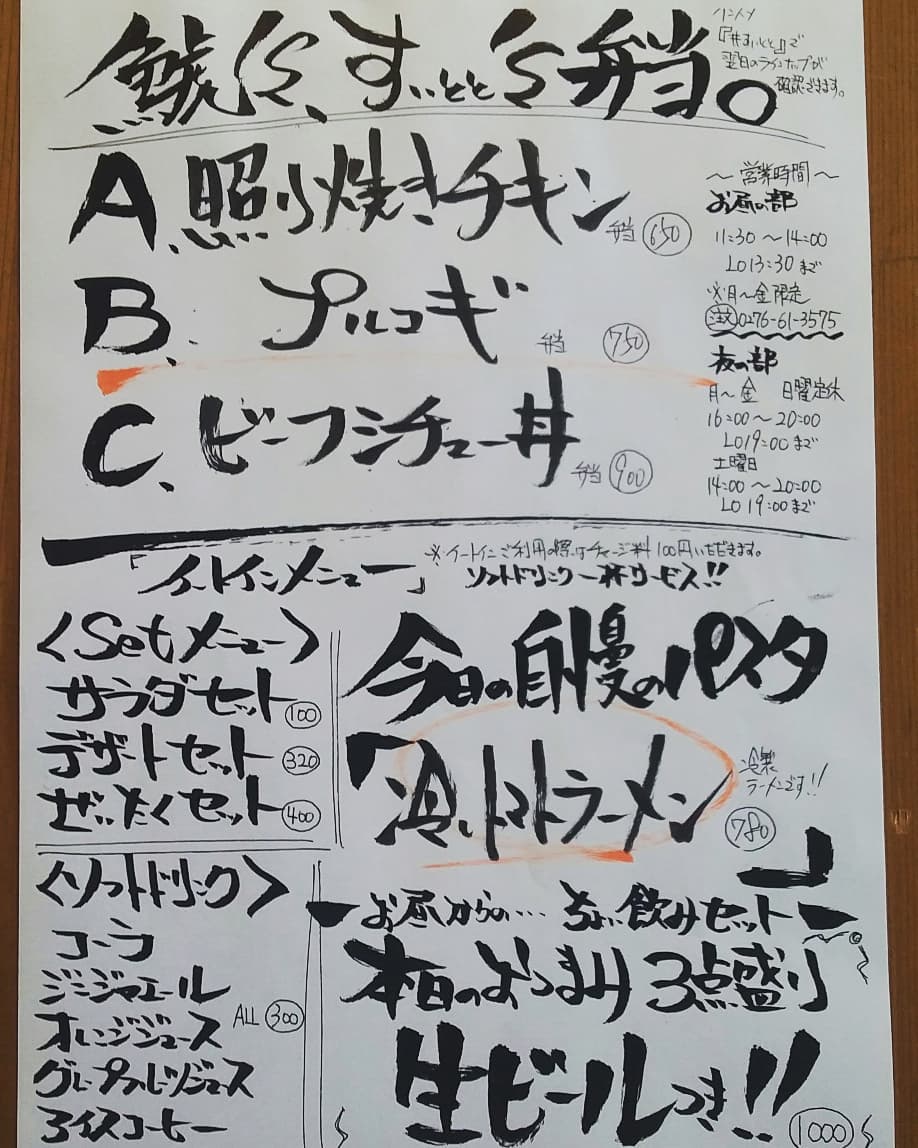 すいとと弁当。
インスタ
『#すいとと』で
翌日のラインナップが
確認できます。
A、照り焼きチキン 弁当 650
B、プルコギ 弁当 750
C、ビーフシチュー丼 弁当 900
～営業時間～
お昼の部
11:30～14:00
LO13:30まで
※月～金限定
注文 0276-61-3575
夜の部
月～金 日曜定休
16:00～20:00
LO19:00まで
土曜日
14:00～20:00
LO19:00まで
「イートインメニュー」
※イートインご利用の際はチャージ料100円いただきます。
ソフトドリンク一杯サービス!!
〈Setメニュー〉
サラダセット 100
デザートセット 320
ぜいたくセット 400
今日の自慢のパスタ
「冷、トマトラーメン」
冷製
ラーメンです!!
780
〈ソフトドリンク〉
コーラ
ジンジャエール
オレンジジュース
グレープフルーツジュース
アイスコーヒー
ALL 300
お昼からの…ちょい飲みセット
本日のおつまみ3点盛り
生ビールつき!!
1000